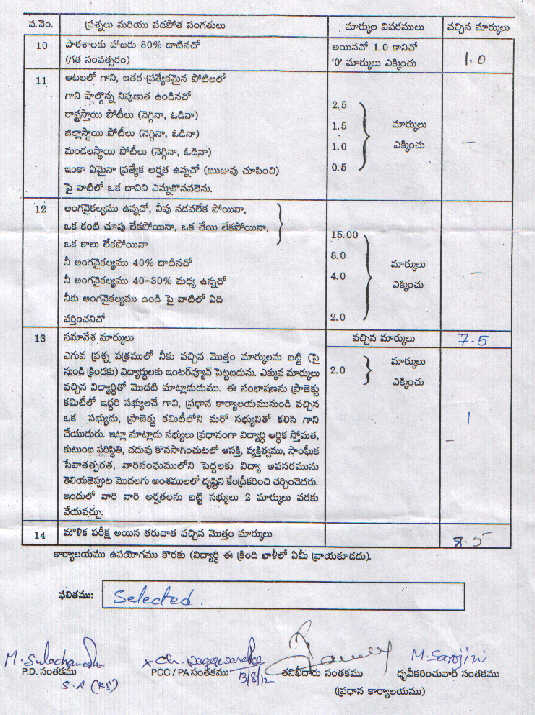 వ.నెం. ప్రశ్నలు మరియు వడపోత సంగతులు మార్కుల వివరములు వచ్చిన మార్కులు
10 పాఠశాలకు హాజరు 80% దాటినచో అయినచో 1.0 కానిచో 1.0
(గత సంవత్సరం) '0' మార్కులు ఎక్కించు
11 ఆటలలో గాని, ఇతర ప్రత్యేకమైన పోటీలలో
గాని పాల్గొన్న నిపుణుత ఉండినచో 2.5
రాష్ట్రస్థాయి పోటీలు (నెగ్గినా, ఓడినా) 1.5 మార్కులు
జిల్లాస్థాయి పోటీలు (నెగ్గినా, ఓడినా) 1.0 ఎక్కించు
మండలస్థాయి పోటీలు (నెగ్గినా, ఓడినా) 0.5
ఇంకా ఏమైనా ప్రత్యేక అర్హత ఉన్నచో (ఋజువు చూపించి)
పై వాటిలో ఒక దానిని ఎన్నుకొనవలెను.
12 అంగవైకల్యము ఉన్నచో, నీవు నడవలేక పోయినా,
ఒక కంటి చూపు లేకపోయినా, ఒక చేయి లేకపోయినా, 15.00
ఒక కాలు లేకపోయినా
నీ అంగవైకల్యము 40% దాటినచో మార్కులు
నీ అంగవైకల్యము 40-30% మధ్య ఉన్నచో 4.0 ఎక్కించు
నీకు అంగవైకల్యము ఉండి పై వాటిలో ఏది
వర్తించనిచో 2.0
13 సమావేశ మార్కులు వచ్చిన మార్కులు 7.5
ఎగువ ప్రశ్న పత్రములో నీకు వచ్చిన మొత్తం మార్కులను బట్టి (పై మార్కులు
నుండి క్రిందకు) విద్యార్థులకు ఇంటర్వ్యూవ్ పెట్టబడును. ఎక్కువ మార్కులు 2.0 ఎక్కించు
వచ్చిన విద్యార్థితో మొదట మాట్లాడుదుము. ఈ సంభాషణను ప్రాజెక్టు
కమిటీలో ఇద్దరి సభ్యులనే గాని, ప్రధాన కార్యాలయమునుండి వచ్చిన
ఒక సభ్యుడు, ప్రాజెక్టు కమిటీలోని మరో సభ్యునితో కలిసి గాని 1
చేయుదురు. ఇట్లా మాట్లాడు సభ్యులు ప్రధానంగా విద్యార్థి ఆర్థిక స్తోమత,
కుటుంబ పరిస్థితి, చదువు కొనసాగించుటలో ఆసక్తి, వ్యక్తిత్వము, సాంఘిక
సేవాతత్పరత, వారిసంఘములోని పెద్దలకు విద్యా అవసరమును
తెలియజెప్పుట మొదలగు అంశములలో దృష్టిని కేంద్రీకరించి చర్చించెదరు.
ఇందులో వారి వారి అర్హతలను బట్టి సభ్యులు 2 మార్కులు వరకు
వేయవచ్చు.
14 మౌఖిక పరీక్ష అయిన తరువాత వచ్చిన మొత్తం మార్కులు 8.5
కార్యాలయము ఉపయోగము కొరకు (విద్యార్థి ఈ క్రింది ఖాళీలో ఏమీ వ్రాయకూడదు).
ఫలితము: Selected.
M. Sulochana M. Sarojini
P.D. సంతకము POC / PA సంతకము 13/8/12 తనిఖీదారు సంతకము ధృవీకరించువారి సంతకము
(ప్రధాన కార్యాలయము)